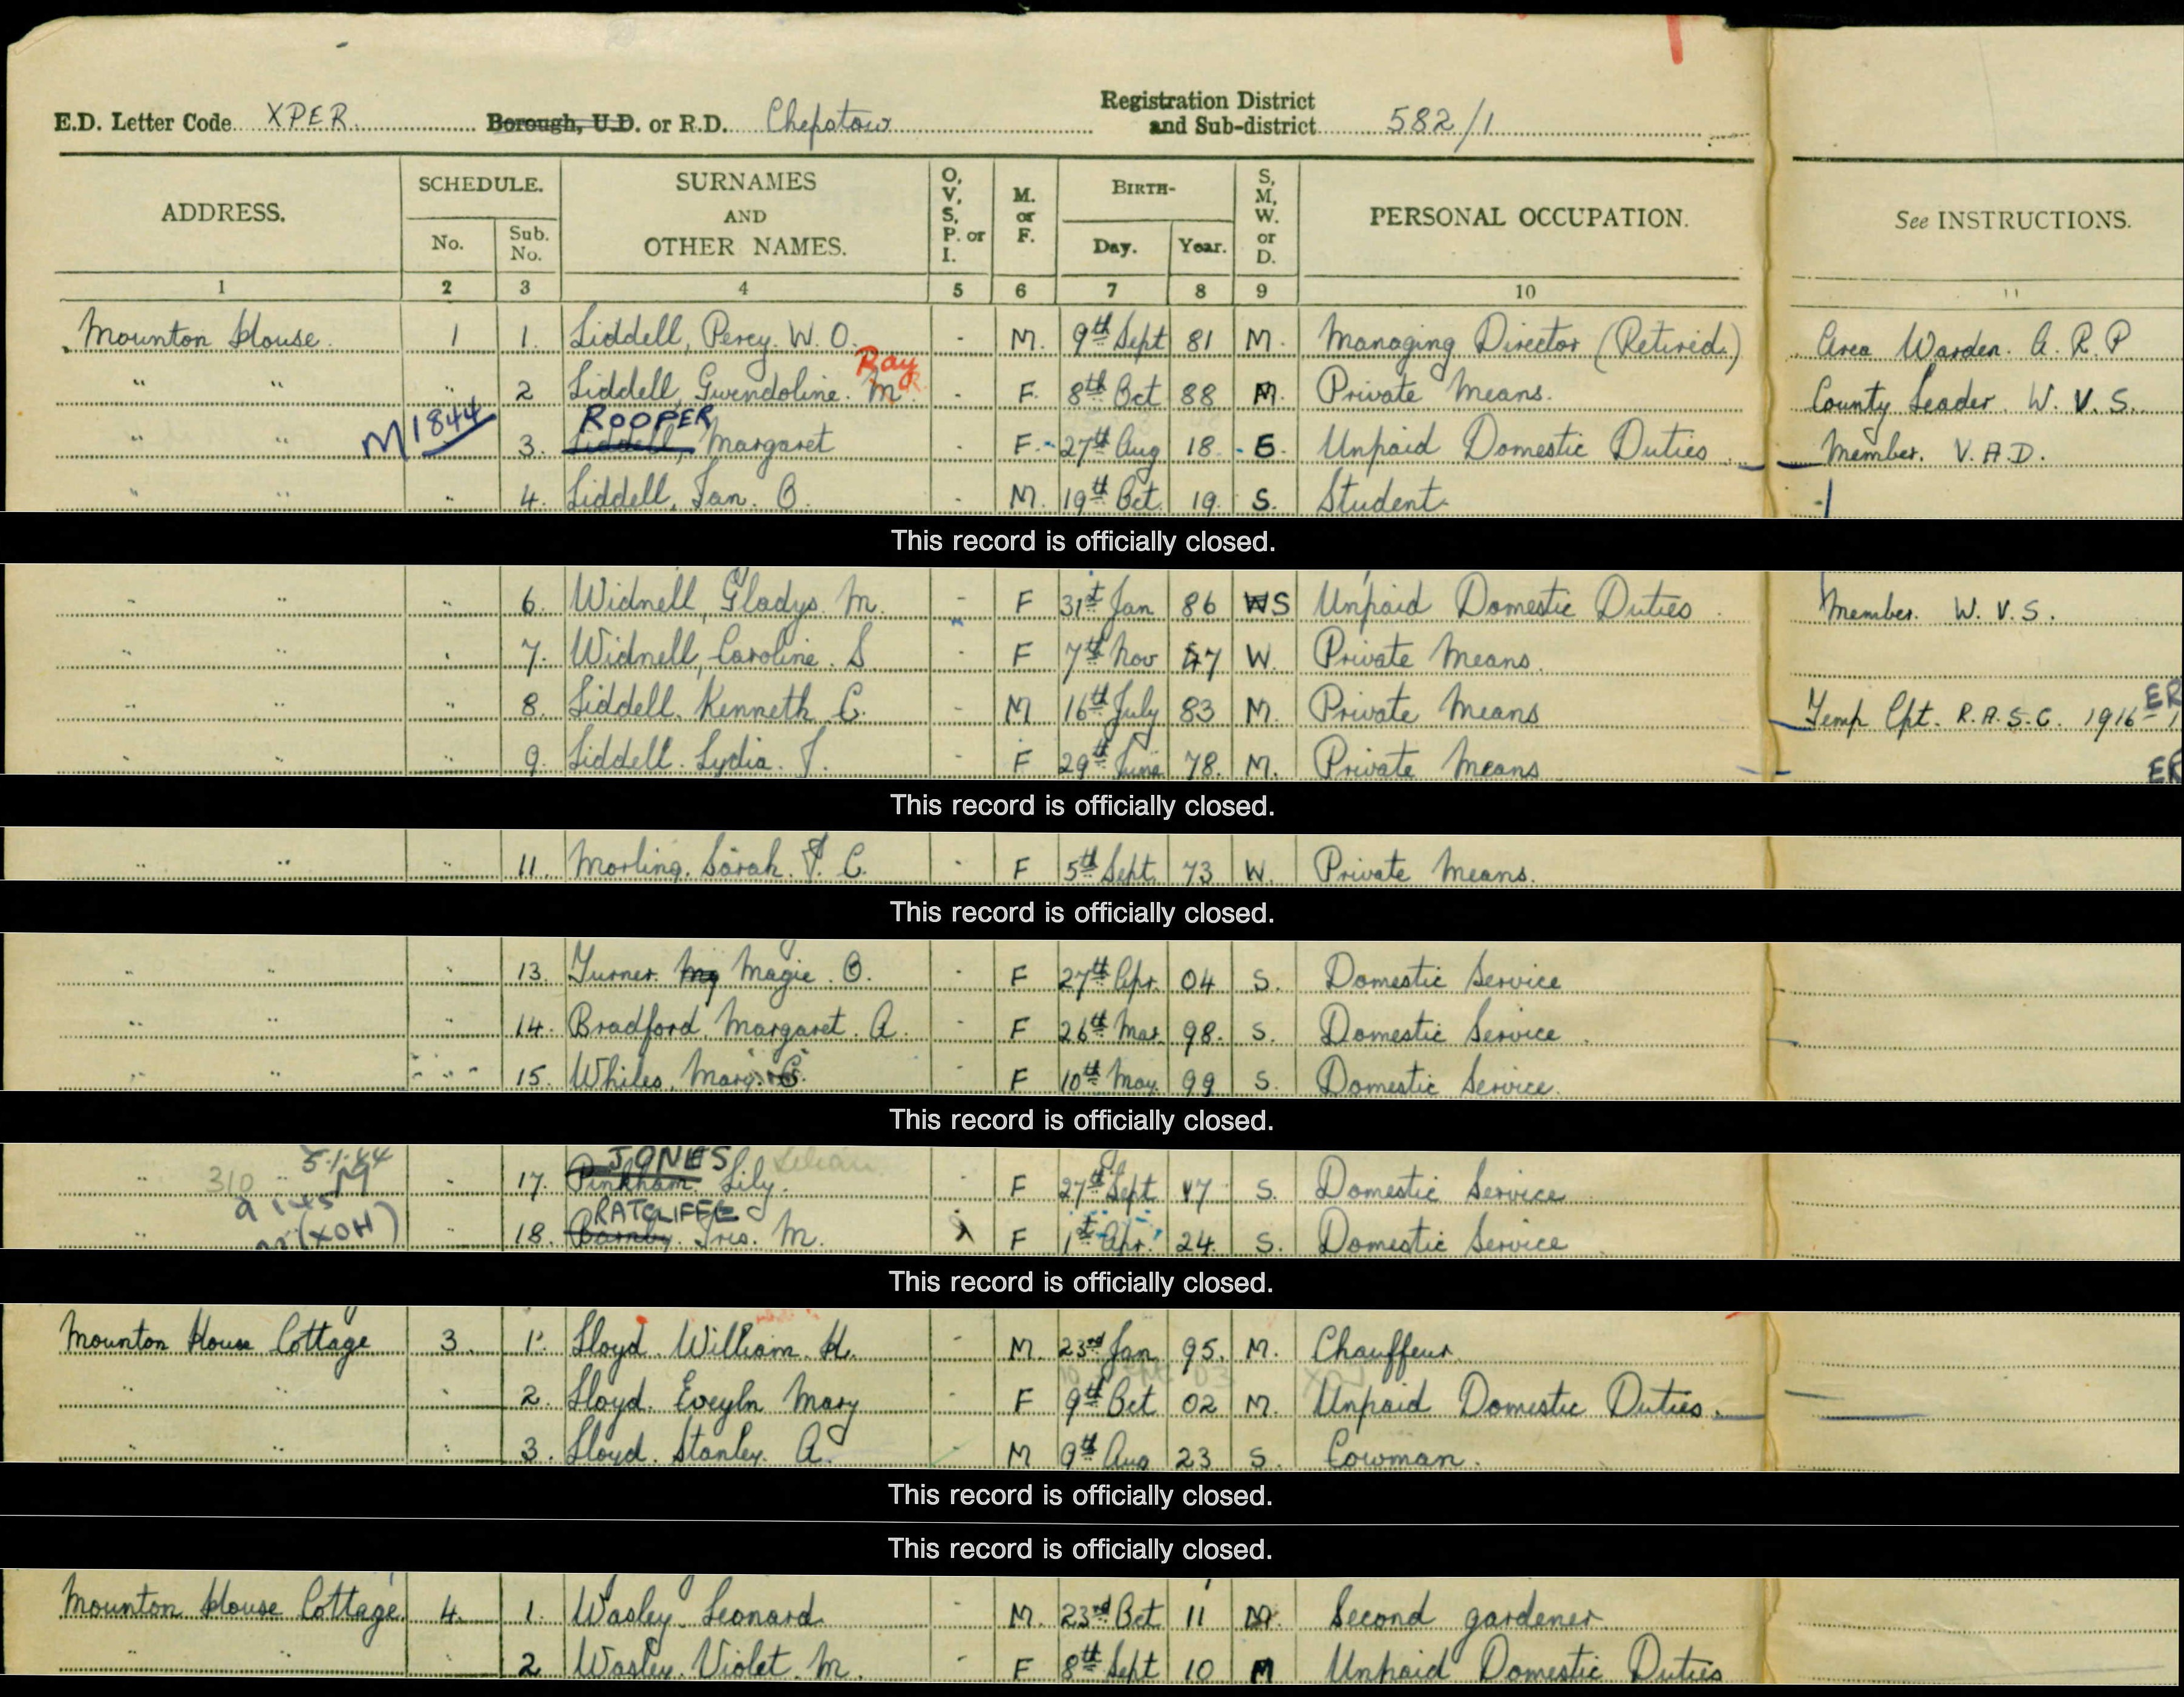 E.D. Letter Code XPER Borough, U.D. or R.D. Chepstow Registration District and Sub-district 582/1
ADDRESS. SCHEDULE. No. Sub. No. SURNAMES AND OTHER NAMES. O, V, S, P. or I. M. or F. BIRTH- Day. Year. S, M, W. or D. PERSONAL OCCUPATION. See INSTRUCTIONS.
1 2 3 4 5 6 7 8 9 10 11
Mounton House. 1 1. Liddell, Percy. W. O. - M. 9th Sept 81 M. Managing Director (Retired.) Area Warden. A. R. P
Ray
" " " 2 Liddell, Gwendoline. M - F. 8th Oct 88 M. Private Means. County Leader. W. V. S.
M 1844 ROOPER
" " 3. Liddell, Margaret - F. 27th Aug 18. S. Unpaid Domestic Duties. Member. V.A.D.
" " " 4. Liddell, Ian. O. - M. 19th Oct. 19. S. Student
This record is officially closed.
" " " 6. Widnell, Gladys. M. - F 31st Jan 86 WS Unpaid Domestic Duties. Member. W. V. S.
" " " 7. Widnell, Caroline. S - F 7th Nov 47 W. Private Means.
" " " 8. Liddell. Kenneth. C. - M 16th July 83 M. Private Means Temp Cpt. R.A.S.C. 1916- ER
" " " 9. Liddell. Lydia. J. - F 29th June 78. M. Private Means ER
This record is officially closed.
" " " 11. Morling. Sarah. C. - F 5th Sept. 73 W. Private Means.
This record is officially closed.
" " " 13. Turner. Mag Magie. O. - F 27th Apr. 04 S. Domestic Service
" " " 14. Bradford, Margaret. A. - F 26th Mar 98. S. Domestic Service
" " " 15. Whiles, Mary. - F 10th May. 99 S. Domestic Service.
This record is officially closed.
5.1.44 JONES Lilian
" 310 " 17. Pinkham Lily. - F 27th Sept 17 S. Domestic Service
RATCLIFFE
" (XOH) 18. Iris. M. F 1st Apr. 24. S. Domestic Service
This record is officially closed.
Mounton House Cottage 3. 1. Lloyd. William. H. - M. 23rd Jan 95. M. Chauffeur.
" " " 2. Lloyd. Eveyln Mary - F 9th Oct 02 M. Unpaid Domestic Duties.
" " " 3. Lloyd. Stanley. A. - M 9th Aug 23 S. Cowman.
This record is officially closed.
This record is officially closed.
Mounton House Cottage. 4. 1. Wasley. Leonard. - M. 23rd Oct 11 M. Second gardener.
" " " 2 Wasley. Violet. M. - F 8th Sept 10 M Unpaid Domestic Duties